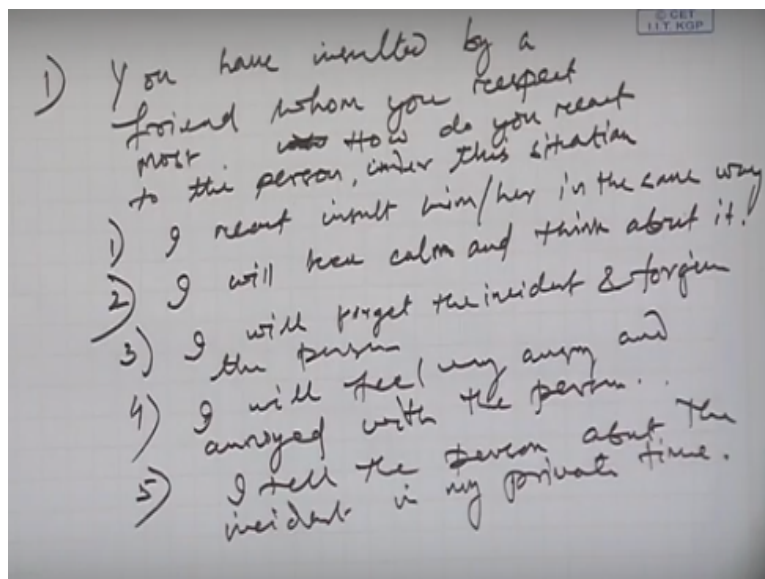 © CET
I.I.T. KGP
1) You have insulted by a
friend whom you respect
most How do you react
to the person, under this situation
1) I react insult him/her in the same way
2) I will keep calm and think about it.
3) I will forget the incident & forgive
the person
4) I will feel very angry and
annoyed with the person..
5) I tell the person about the
incident in my private time.